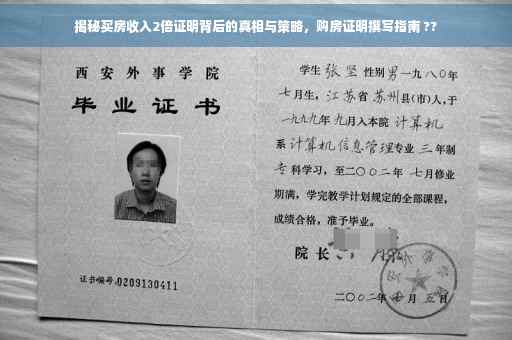 揭秘买房收入2倍证明背后的真相与策略，购房证明撰写指南 ??
西安外事学院
毕业证书
证书编号:0209130411
学生 张坚 性别 男 一九八〇年
七月生，江苏省 苏州县(市)人，于
一九九九年 九月入本院 计算机
系 计算机信息管理专业 三 年制
专科学习，至二〇〇二年 七月修业
期满，学完教学计划规定的全部课程，
成绩合格，准予毕业。
院长
二〇〇二年 月 五日